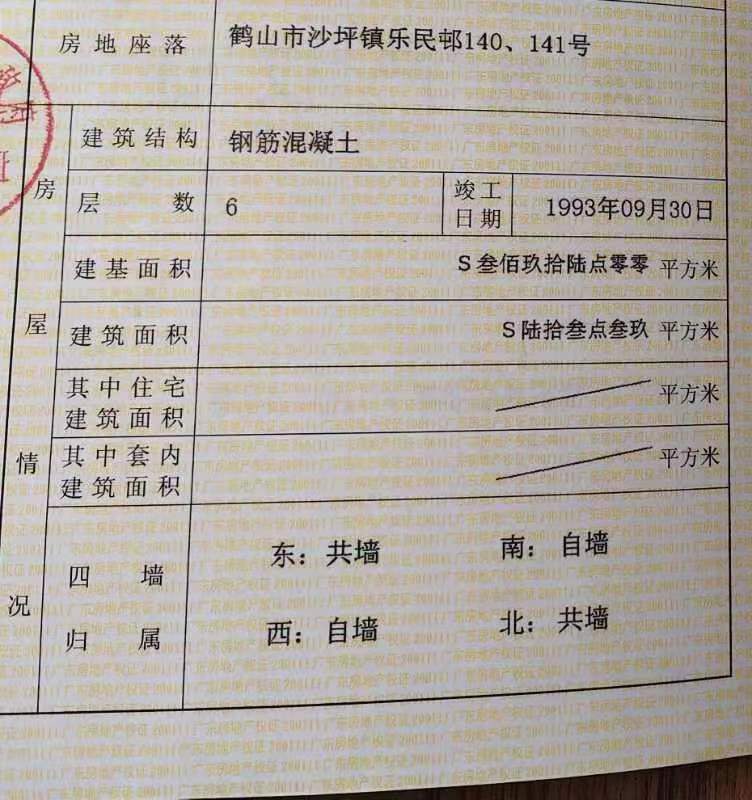 房地座落 鹤山市沙坪镇乐民邨140、141号
房屋情况
建筑结构 钢筋混凝土
层数 6 竣工日期 1993年09月30日
建基面积 S叁佰玖拾陆点零零 平方米
建筑面积 S陆拾叁点叁玖 平方米
其中住宅
建筑面积 平方米
其中套内
建筑面积 平方米
四墙 东：共墙 南：自墙
归属 西：自墙 北：共墙